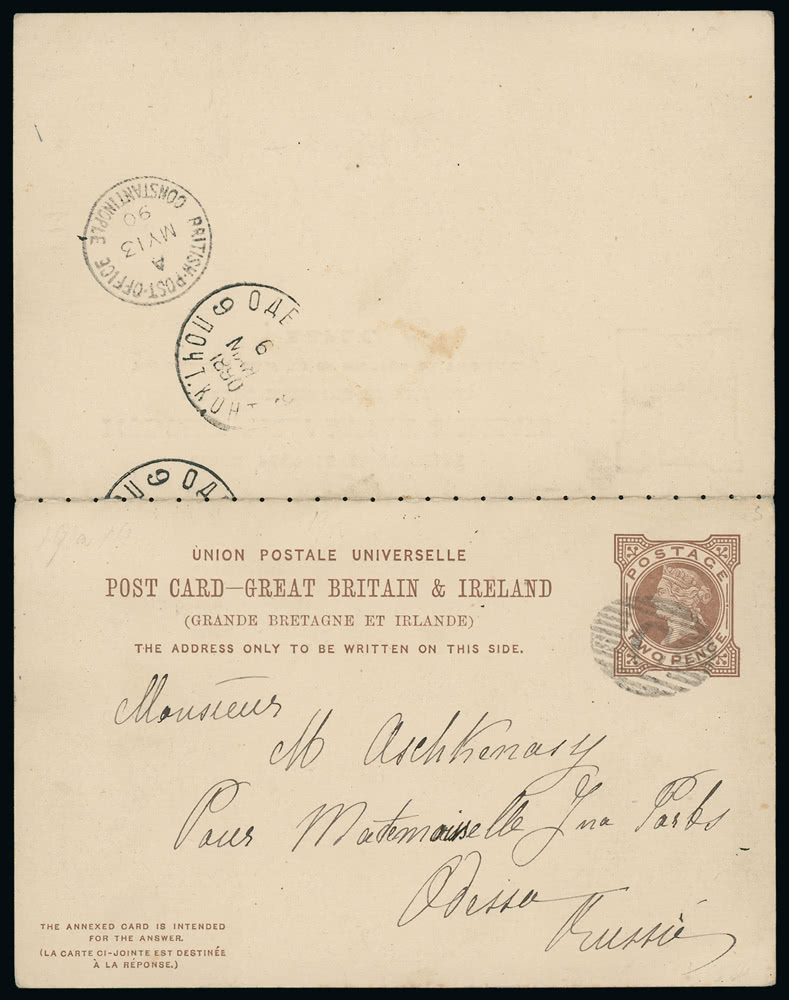 BRITISH·POST·OFFICE CONSTANTINOPLE
A
MY 13
90
9 ОДЕ
6
МАЯ
1890
ПОЧТ. КОН
9 ОД
UNION POSTALE UNIVERSELLE
POST CARD—GREAT BRITAIN & IRELAND
(GRANDE BRETAGNE ET IRLANDE)
THE ADDRESS ONLY TO BE WRITTEN ON THIS SIDE.
POSTAGE
TWO PENCE
Monsieur
M Aschkenasy
Pour Matemoiselle Ina Parbs
Odessa
Russie
THE ANNEXED CARD IS INTENDED
FOR THE ANSWER.
(LA CARTE CI-JOINTE EST DESTINÉE
À LA RÉPONSE.)